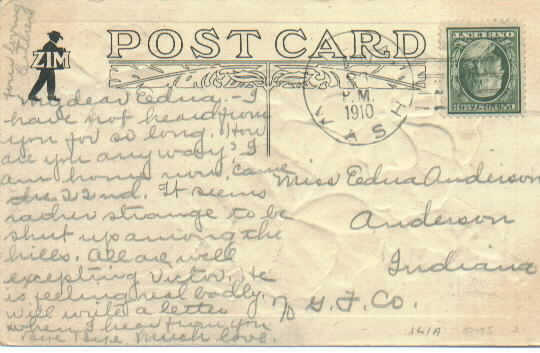 ZIM
POST CARD
My dear Edna, - I
have not heard from
you for so long. How
are you any way? I
am home now, came
the 22nd. It seems
rather strange to be
shut up among the
hills. All are well
excepting Victor, He
is feeling real badly.
will write a letter
when I hear from you
Bye Bye Much love.
P.M.
1910
WASH
Miss Edna Anderson
Anderson
Indiana
% G. F. Co.
161A